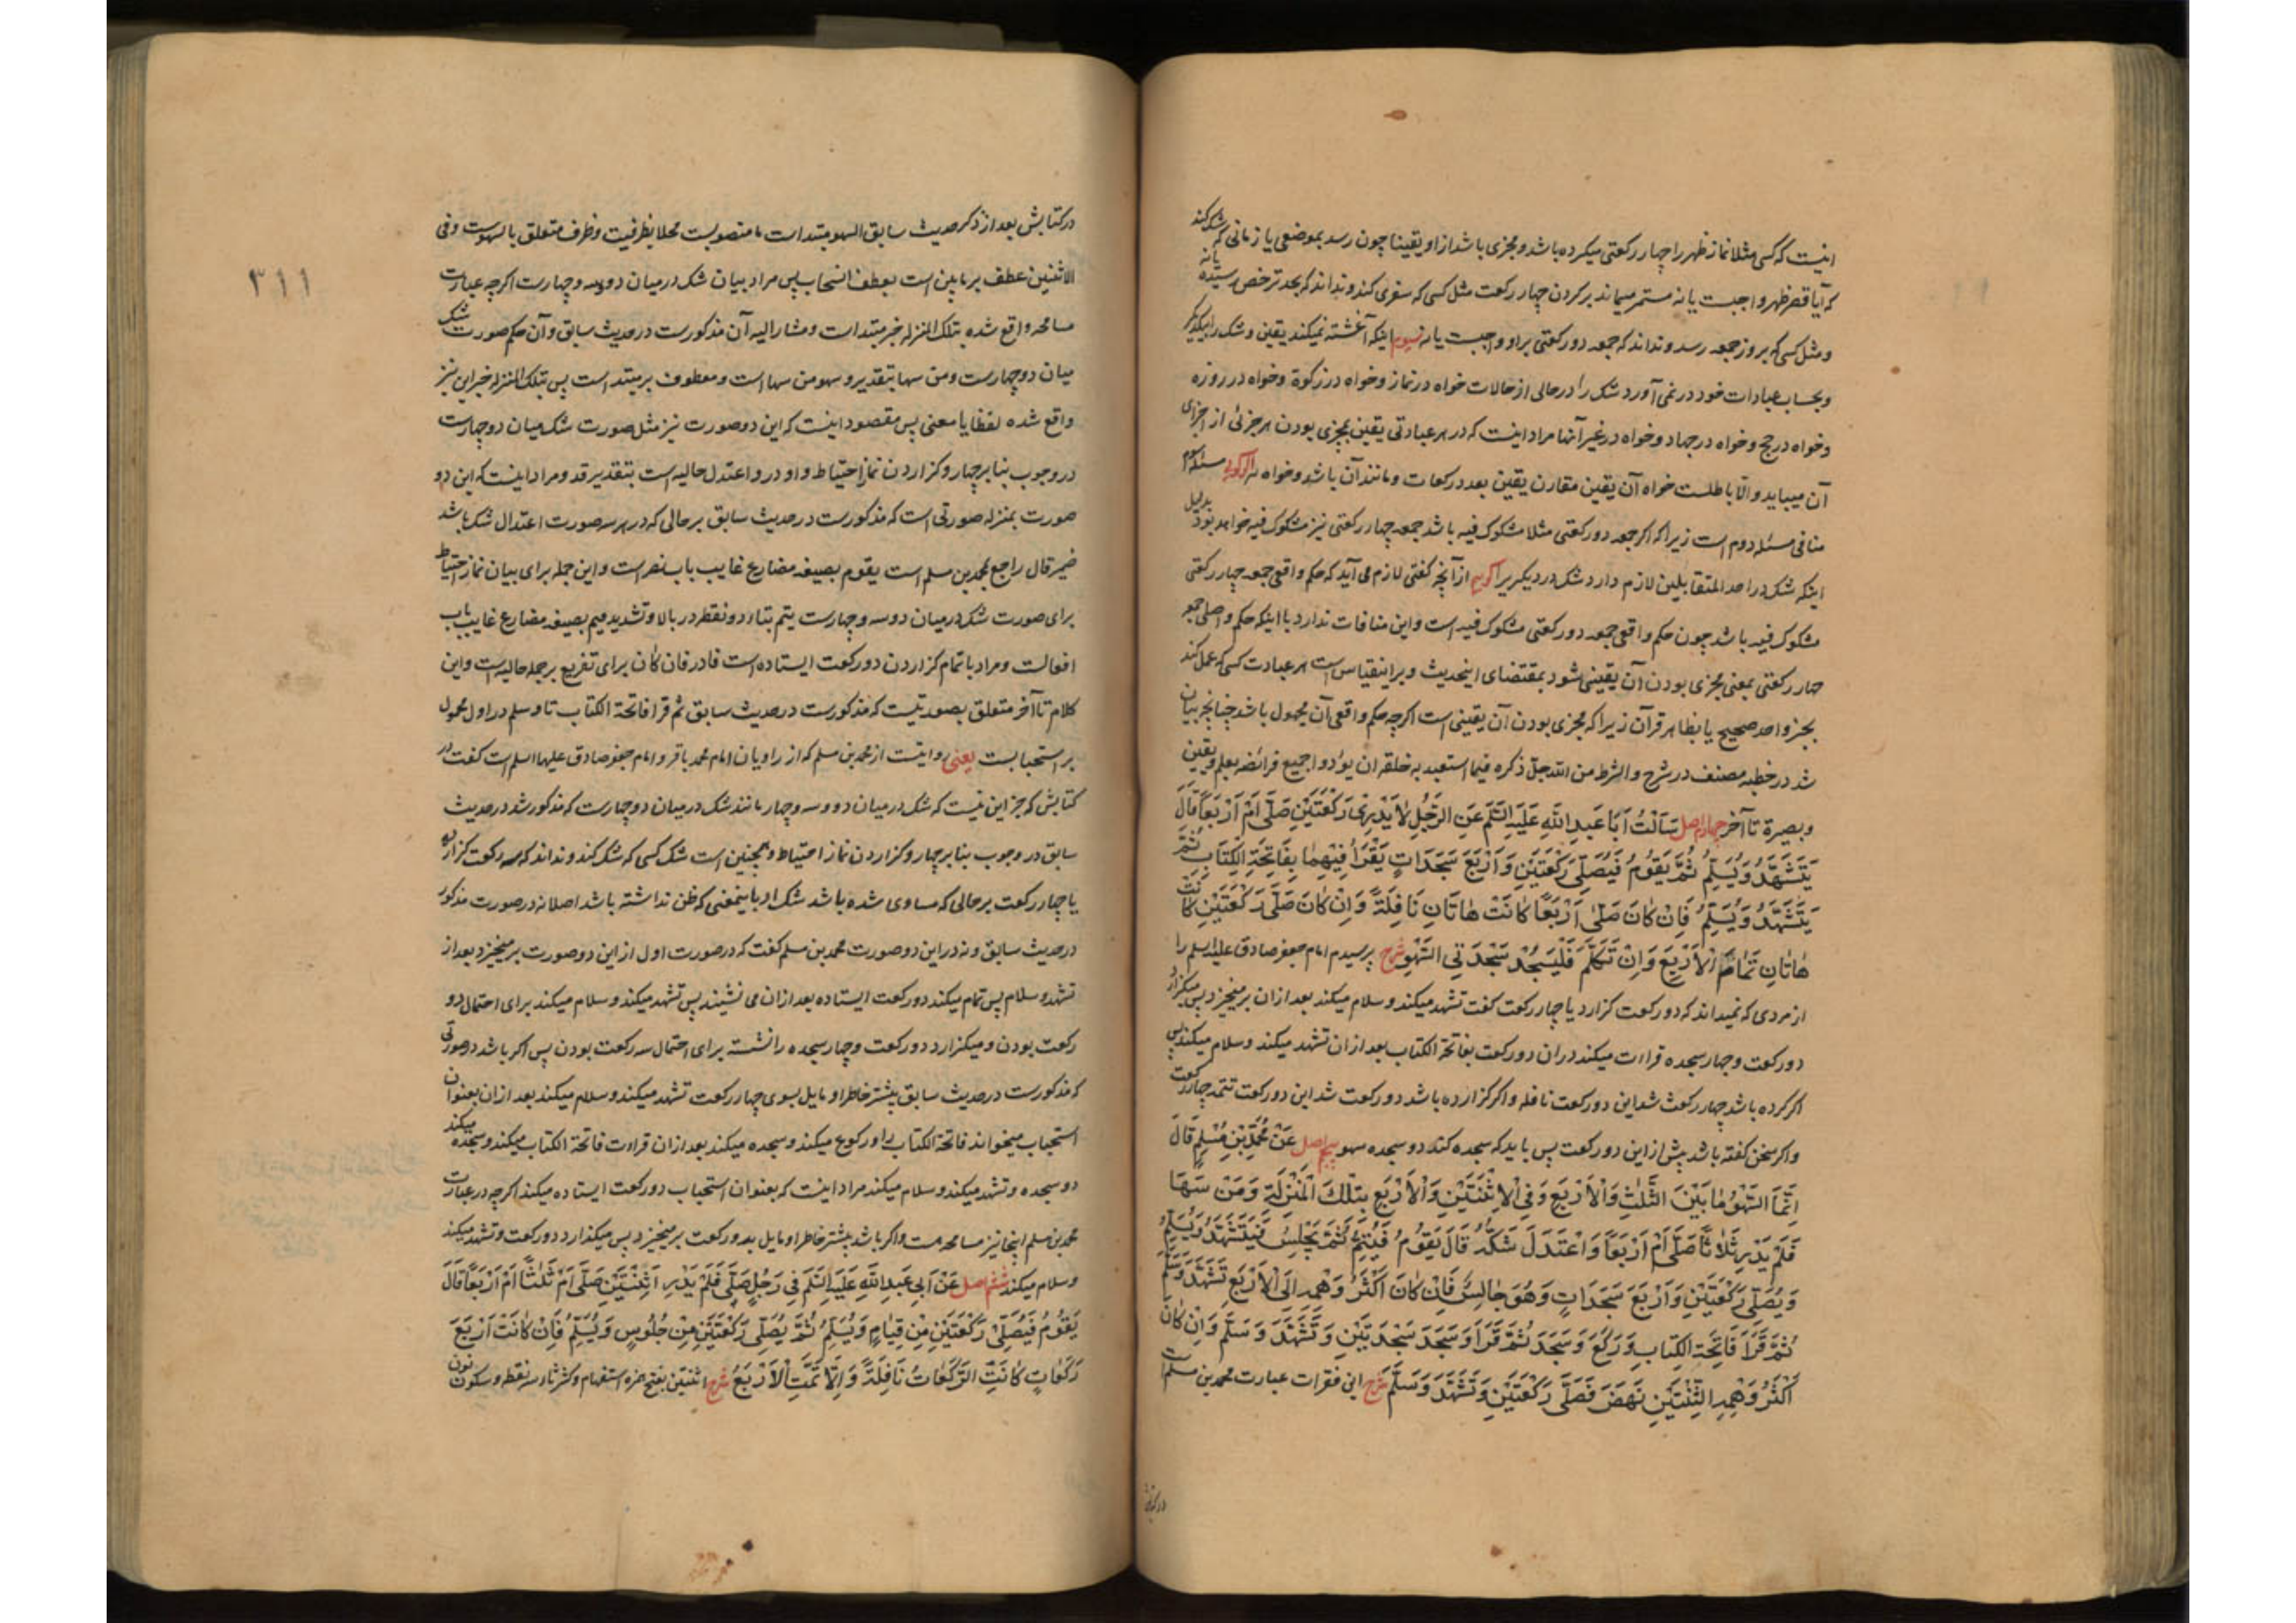 اینست که کسی مثلا نماز ظهر را چهار رکعتی میکرده باشد و مجزی باشد از او یقینا چون رسد بموضعی یا زمانی که شک کند
که آیا قصر ظهر واجبست یا نه مستمر میماند بر کردن چهار رکعت مثل کسی که سفری کند و نداند که بحد ترخص رسیده یا نه
و مثل کسی که بروز جمعه رسد و نداند که جمعه دو رکعتی بر او واجبست یا نه سیوم اینکه آغشته نمیکند یقین و شک را بیکدیگر
و بحساب عبادات خود در نمی آورد شک را در حالی از حالات خواه در نماز و خواه در زکوة و خواه در روزه
و خواه در حج و خواه در جهاد و خواه در غیر آنها مراد اینست که در هر عبادتی یقین بمجزی بودن هر جزئی از اجزای
آن میباید و الّا باطلست خواه آن یقین مقارن یقین بعدد رکعات و مانند آن باشد و خواه نه اگر گوئی مسئله سوم
منافی مسئله دوم است زیرا که اگر جمعه دو رکعتی مثلا مشکوک فیه باشد جمعه چهار رکعتی نیز مشکوک فیه خواهد بود بدلیل
اینکه شک در احد المتقابلین لازم دارد شک در دیگر برا گوییم از آنچه گفتی لازم می آید که حکم واقعی جمعه چهار رکعتی
مشکوک فیه باشد چون حکم واقعی جمعه دو رکعتی مشکوک فیه است و این منافات ندارد با اینکه حکم واصلی جمعه
چهار رکعتی بمعنی مجزی بودن آن یقینی شود بمقتضای اینحدیث و برا ینقیاس است هر عبادت کسی که عمل کند
بخبر واحد صحیح یا بظاهر قرآن زیرا که مجزی بودن آن یقینی است اگرچه حکم واقعی آن مجهول باشد چنانچه بیان
شد در خطبه مصنف در شرح و الشرط من الله جل ذکره فیما استعبد به خلقه ان یؤدوا جمیع فرائضه بعلم و یقین
و بصیرة تا آخر چهارم اصل سَأَلْتُ أَبَا عَبدِ اللّهِ عَلَيهِ السَّلم عَنِ الرَّجُلِ لَا يَدْرِی رَكْعَتَيْنِ صَلَّى أَمْ أَرْبَعاً قَالَ
يَتَشَهَّدُ وَيُسَلِّمُ ثُمَّ يَقُومُ فَيُصَلِّي رَكْعَتَيْنِ وَأَرْبَعَ سَجَدَاتٍ يَقْرَأُ فِيهِمَا بِفَاتِحَةِ الكِتَابِ ثُمَّ
يَتَشَهَّدُ وَيُسَلِّمُ فَاِنْ كَانَ صَلّى أَرْبَعًا كَانَتْ هَاتَانِ نَافِلَةً وَاِنْ كَانَ صَلّى رَكْعَتَيْنِ كَانَتْ
هَاتَانِ تَمَامَ الْأَرْبَعِ وَاِنْ تَكَلَّمَ فَلْيَسْجُدْ سَجْدَتَيِ السَّهْوِ شرح پرسیدم امام جعفر صادق علیه السلم را
از مردی که نمیداند که دو رکعت گزارد یا چهار رکعت گفت تشهد میکند و سلام میکند بعد ازان بر میخیزد پس میگزارد
دو رکعت و چهار سجده قراءت میکند دران دو رکعت بفاتحة الکتاب بعد ازان تشهد میکند و سلام میکند پس
اگر کرده باشد چهار رکعت شد این دو رکعت نافله و اگر گزارده باشد دو رکعت شد این دو رکعت تتمه چهار رکعت
و اگر سخن گفته باشد پیش از این دو رکعت پس باید که سجده کند دو سجده سهو پنجم اصل عَنْ مُحَمَّدِ بْنِ مُسْلِمٍ قَالَ
اِنَّمَا السَّهْوُ مَا بَيْنَ الثَّلَثِ وَالْأَرْبَعِ وَفِي الْاِثْنَتَيْنِ وَالْأَرْبَعِ بِتِلْكَ الْمَنْزِلَةِ وَمَنْ سَهَا
فَلَمْ يَدْرِ ثَلَاثًا صَلَّى أَمْ أَرْبَعًا وَاعْتَدَلَ شَكُّهُ قَالَ يَقُومُ فَيُتِمُّ ثُمَّ يَجْلِسُ فَيَتَشَهَّدُ وَيُسَلِّمُ
وَيُصَلِّي رَكْعَتَيْنِ وَأَرْبَعَ سَجَدَاتٍ وَهُوَ جَالِسٌ فَاِنْ كَانَ أَكْثَرُ وَهْمِهِ اِلَى الْأَرْبَعِ تَشَهَّدَ وَسَلَّمَ
ثُمَّ قَرَأَ فَاتِحَةَ الكِتَابِ وَرَكَعَ وَسَجَدَ ثُمَّ قَرَأَ وَسَجَدَ سَجْدَتَيْنِ وَتَشَهَّدَ وَسَلَّمَ وَاِنْ كَانَ
أَكْثَرُ وَهْمِهِ الثِّنْتَيْنِ نَهَضَ فَصَلَّى رَكْعَتَيْنِ وَتَشَهَّدَ وَسَلَّمَ شرح این فقرات عبارت محمد بن مسلم است
در کتابش
۳۱۱
در کتابش بعد از ذکر حدیث سابق السهو مبتداست ما منصوبست محلا بظرفیت و ظرف متعلق بالسهوست و فی
الاثنین عطف بر ما بین است بعطف انسحاب پس مراد بیان شک در میان دو و سه و چهارست اگرچه عبارت
مسامحه واقع شده بتلک المنزله خبر مبتداست و مشار الیه آن مذکورست در حدیث سابق و آن حکم صورت شک
میان دو چهارست و من سها بتقدیر و سهو من سها است و معطوف بر مبتداست پس بتلک المنزله خبر این نیز
واقع شده لفظا یا معنی پس مقصود اینست که این دو صورت نیز مثل صورت شک میان دو چهارست
در وجوب بنا بر چهار و گزاردن نماز احتیاط و او در و اعتدل حالیه است بتقدیر قد و مراد اینست که این دو
صورت بمنزله صورتی است که مذکورست در حدیث سابق بر حالی که در هر سه صورت اعتدال شک باشد
ضمیر قال راجع بمحمد بن مسلم است یقوم بصیغه مضارع غایب باب نصر است و این جمله برای بیان نماز احتیاط
برای صورت شک در میان دو سه و چهارست یتم بتاء دو نقطه در بالا و تشدید میم بصیغه مضارع غایب باب
افعالست و مراد باتمام گزاردن دو رکعت ایستاده است فا در فان کان برای تفریع بر جمله حالیه است و این
کلام تا آخر متعلق بصورتیست که مذکورست در حدیث سابق ثم قرا فاتحة الکتاب تا و سلم در اول محمول
بر استحبابست یعنی روایتست از محمد بن مسلم که از راویان امام محمد باقر و امام جعفر صادق علیهما السلم است گفت در
کتابش که جز این نیست که شک در میان دو و سه و چهار مانند شک در میان دو چهارست که مذکور شد در حدیث
سابق در وجوب بنا بر چهار و گزاردن نماز احتیاط و همچنین است شک کسی که شک کند و نداند که سه رکعت گزارده
یا چهار رکعت بر حالی که مساوی شده باشد شک او باینمعنی که ظن نداشته باشد اصلا نه در صورت مذکور
در حدیث سابق و نه در این دو صورت محمد بن مسلم گفت که در صورت اول از این دو صورت بر میخیزد بعد از
تشهد و سلام پس تمام میکند دو رکعت ایستاده بعد ازان می نشیند پس تشهد میکند و سلام میکند برای احتمال دو
رکعت بودن و میگزارد دو رکعت و چهار سجده را نشسته برای احتمال سه رکعت بودن پس اگر باشد در صورتی
که مذکورست در حدیث سابق بیشتر خاطر او مایل بسوی چهار رکعت تشهد میکند و سلام میکند بعد ازان بعنوان
استحباب میخواند فاتحة الکتاب را و رکوع میکند و سجده میکند بعد ازان قراءت فاتحة الکتاب میکند و سجده میکند
دو سجده و تشهد میکند و سلام میکند مراد اینست که بعنوان استحباب دو رکعت ایستاده میکند اگرچه در عبارت
محمد بن مسلم اینجا نیز مسامحه هست و اگر باشد بیشتر خاطر او مایل بدو رکعت بر میخیزد پس میگذارد دو رکعت و تشهد میکند
و سلام میکند ششم اصل عَنْ اَبِی عَبدِ اللّهِ عَلَيهِ السَّلم فِی رَجُلٍ صَلَّى فَلَمْ يَدْرِ اَثِنْتَيْنِ صَلَّى اَمْ ثَلٰثًا اَمْ اَرْبَعًا قَالَ
يَقُومُ فَيُصَلِّي رَكْعَتَيْنِ مِنْ قِيَامٍ وَيُسَلِّمُ ثُمَّ يُصَلِّي رَكْعَتَيْنِ مِنْ جُلُوسٍ وَيُسَلِّمُ فَاِنْ كَانَتْ اَرْبَعَ
رَكَعَاتٍ كَانَتِ الرَّكَعَاتُ نَافِلَةً وَاِلَّا تَمَّتِ الْاَرْبَعُ شرح اثنتین بفتح همزه استفهام و کسر ثاء سه نقطه و سکون نون